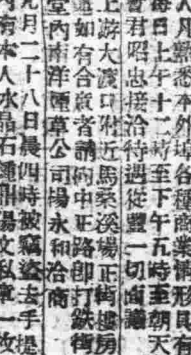 人凡熟悉本外埠各種商業情形具有
每日上午十二時至下午五時至朝天
曾君昭忠接洽待遇從豐一切面議
上游大渡口附近馬桑溪楊正街樓房
如有合意者請向中正路即打鉄街
堂內南洋煙草公司楊永和洽商
月二十八日晨四時被竊盜去手提
內有本人水晶石鍾鼎湯文私章一枚